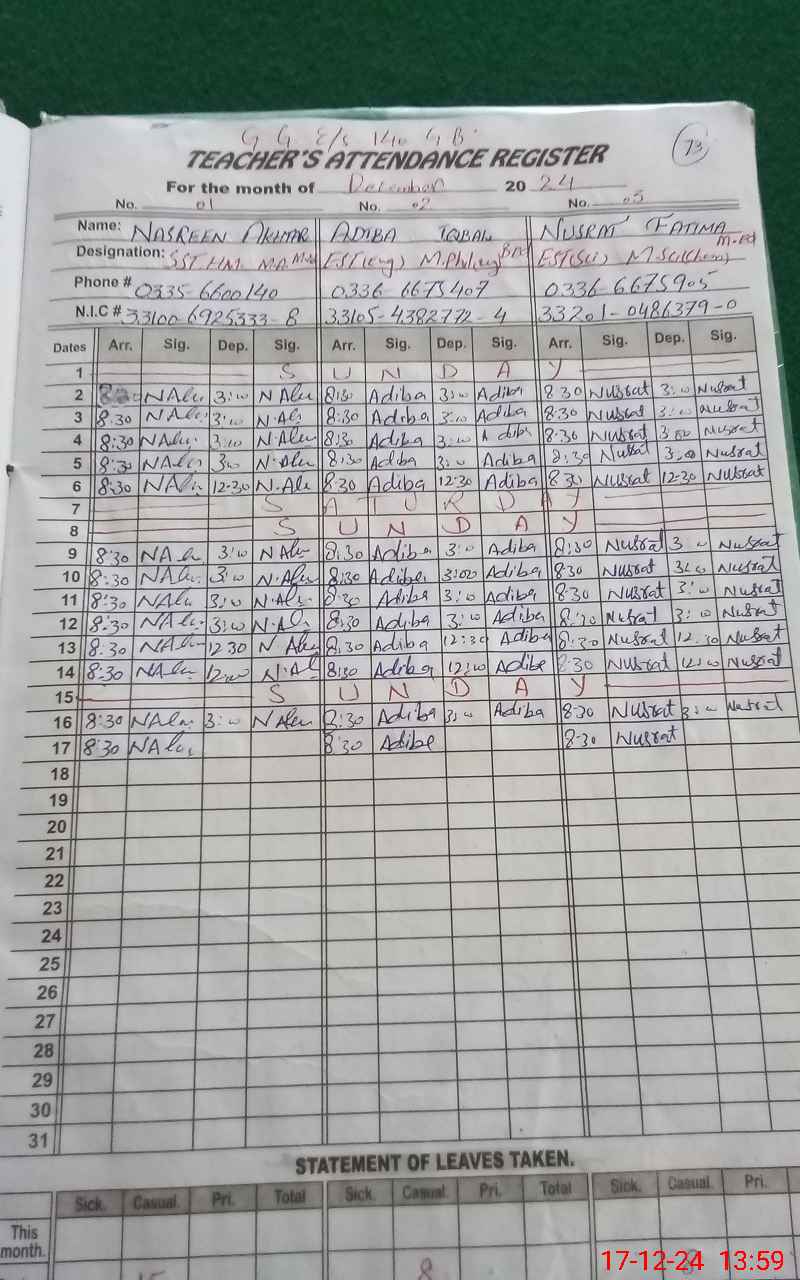 G G E/S 140 G B
73
TEACHER'S ATTENDANCE REGISTER
For the month of December 20 24
No. 01 No. 02 No. 03
Name: NASREEN AKHTAR ADIBA IQBAL NUSRAT FATIMA
Designation: SST HM. M.A M.Ed EST(eng) M.Phil(eng) B.Ed EST(Sci) M.Sc(Chem) M.Ed
Phone # 0335-6600140 0336-6675407 0336-6675905
N.I.C # 33100-6925333-8 33105-4382772-4 33201-0486379-0
Dates Arr. Sig. Dep. Sig. Arr. Sig. Dep. Sig. Arr. Sig. Dep. Sig.
1 S U N D A Y
2 3:00 8:30 Adiba 3:00 Adiba 8 30 Nusrat 3:00 Nusrat
3 8.30 3:00 8:30 Adiba 3:00 Adiba 8.30 Nusrat 3:00 Nusrat
4 8:30 3:00 8:30 Adiba 3:00 Adiba 8.30 Nusrat 3.00 Nusrat
5 8:30 3:00 8:30 Adiba 3:00 Adiba 8:30 Nusrat 3.00 Nusrat
6 8:30 12-30 8-30 Adiba 12:30 Adiba 8.30 Nusrat 12-30 Nusrat
7 S A T U R D A Y
8 S U N D A Y
9 8:30 3:00 8:30 Adiba 3:00 Adiba 8:30 Nusrat 3 Nusrat
10 8:30 3:00 8:30 Adiba 3:00 Adiba 8:30 Nusrat 3:00 Nusrat
11 8:30 3:00 8:30 Adiba 3:00 Adiba 8.30 Nusrat 3:00 Nusrat
12 8:30 3:00 8:30 Adiba 3:00 Adiba 8:30 Nusrat 3:00 Nusrat
13 8.30 12 30 8:30 Adiba 12:30 Adiba 8:30 Nusrat 12.30 Nusrat
14 8:30 12:00 8:30 Adiba 12:00 Adiba 8:30 Nusrat 12:00 Nusrat
15 S U N D A Y
16 8:30 3:00 8:30 Adiba 3:00 Adiba 8:30 Nusrat 3:00 Nusrat
17 8:30 8:30 Adiba 8-30 Nusrat
18
19
20
21
22
23
24
25
26
27
28
29
30
31
STATEMENT OF LEAVES TAKEN.
Sick. Casual. Pri. Total Sick. Casual. Pri. Total Sick. Casual. Pri.
This month.
15 8 8
17-12-24 13:59